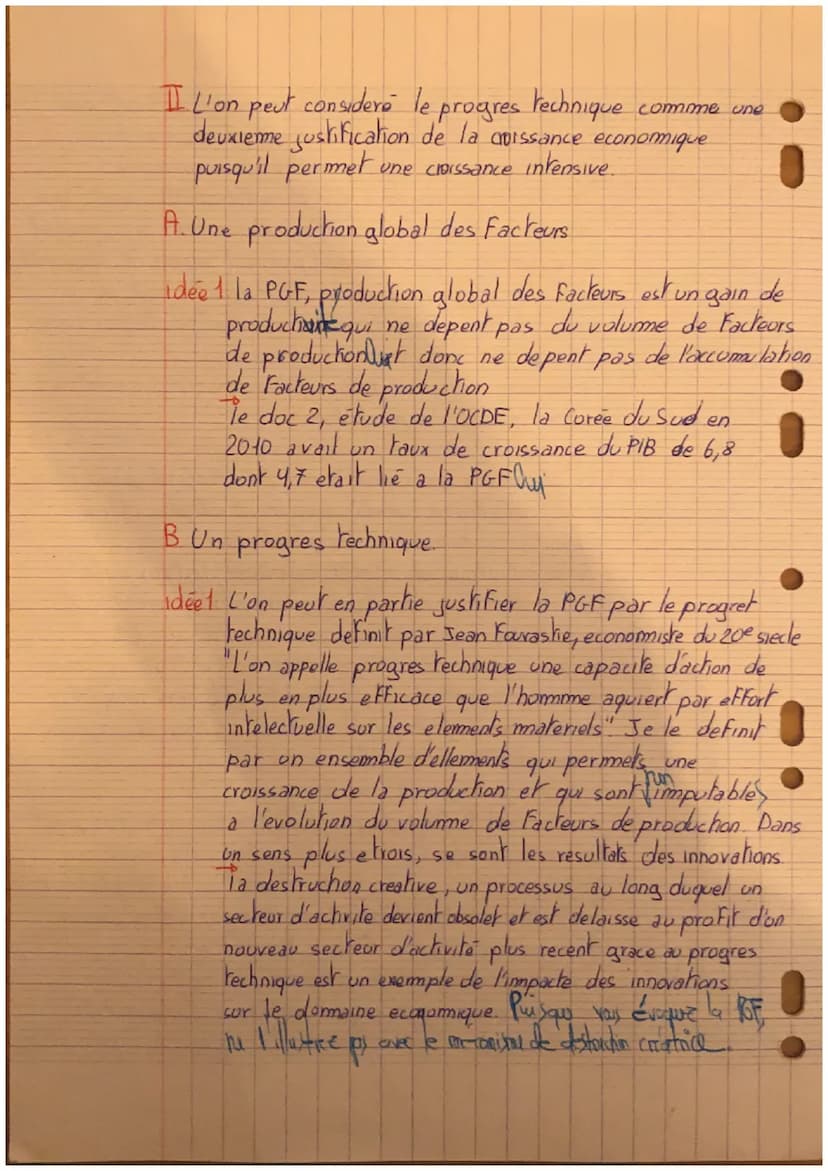 II L'on peut consideré le progres technique comme une
deuxieme justification de la croissance economique
puisqu'il permet une croissance intensive.
A. Une production global des Facteurs
idée 1 la PGF, production global des Facteurs est un gain de
productivité qui ne depent pas du volume de Facteurs
de production et donc ne depent pas de l'accumulation
de Facteurs de production
→ le doc 2, étude de l'OCDE, la Corée du Sud en
2010 avait un taux de croissance du PIB de 6,8
dont 4,7 etait lié a la PGF
B Un progres technique.
idée 1 L'on peut en partie justifier la PGF par le progret
technique definit par Jean Fourastie, economiste du 20e siecle
"L'on appelle progres technique une capacite d'action de
plus en plus efficace que l'homme aquiert par effort
intelectuelle sur les elements materiels". Je le definit
par un ensemble d'ellements qui permets une
croissance de la production et qui sont non imputables
a l'evolution du volumme de Facteurs de production. Dans
un sens plus etrois, se sont les resultats des innovations.
→ la destruction creative, un processus au long duquel un
secteur d'activite devient obsolet et est delaisse au profit d'un
nouveau secteur d'activité plus recent grace au progres
technique est un exemple de l'impacte des innovations
sur le dommaine economique. Puisque vous évoquez la PGF,
ne l'illustrez pas avec le mécanisme de destruction créatrice.